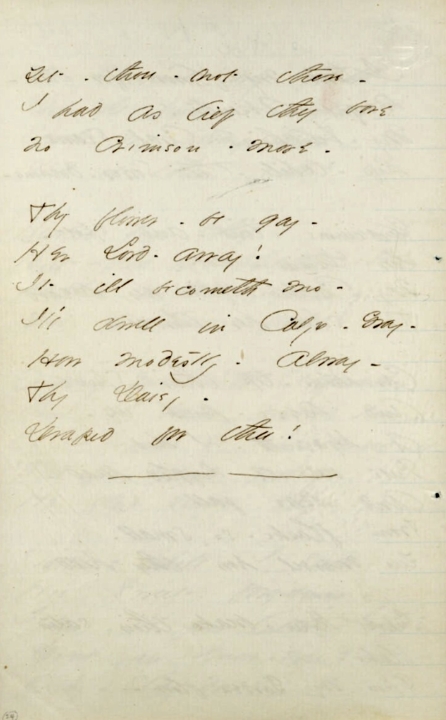 Yet - thou - not there -
I had as lief they bore
No Crimson - more -
Thy flower - be gay -
Her Lord - away!
It ill becometh me -
I'll dwell in Calyx - Gray -
How modestly - alway -
Thy Daisy -
Draped for thee!